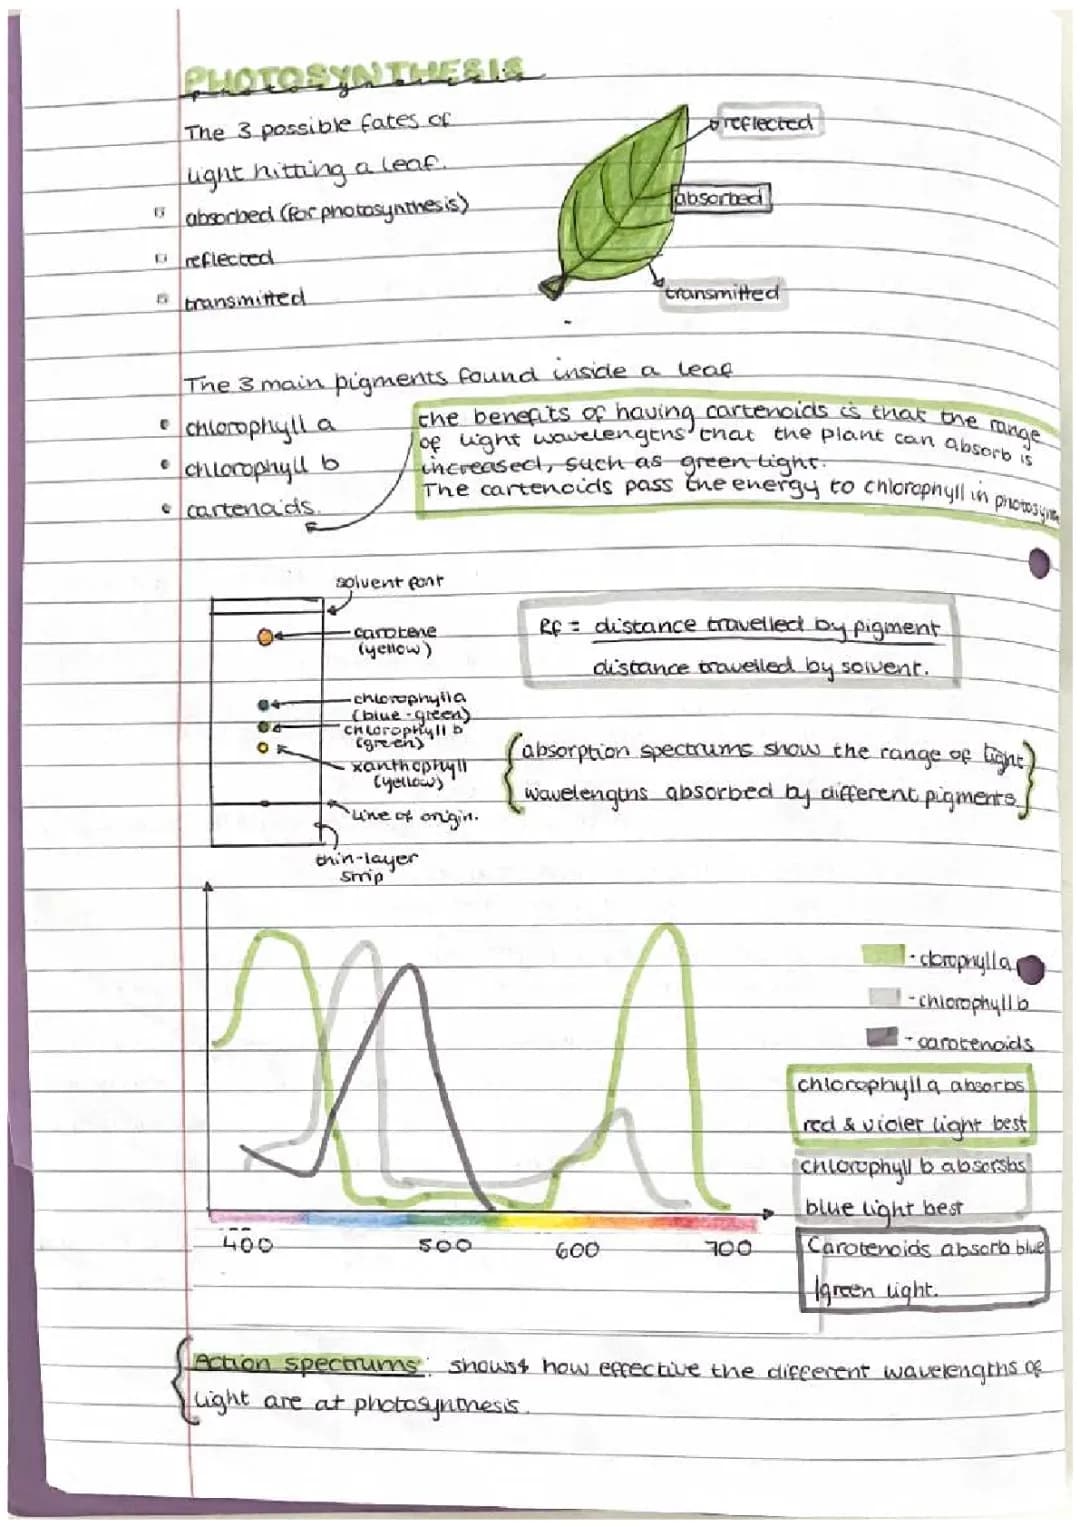 PHOTOSYNTHESIS
The 3 possible fates of
light hitting a leaf.
absorbed (for photosynthesis)
reflected
transmitted
reflected
absorbed
transmitted
The 3 main pigments found inside a leaf
chlorophyll a
chlorophyll b
cartenoids.
the benefits of having cartenoids is that the range
of light wavelengths that the plant can absorb is
increased, such as green light.
The cartenoids pass the energy to chlorophyll in photosynthe
solvent font
carotene
(yellow)
chlorophyll a
(blue-green)
chlorophyll b
(green)
xanthophyll
(yellow)
Line of origin.
thin-layer
strip
Rf = distance travelled by pigment
distance travelled by solvent.
absorption spectrums show the range of light
wavelengths absorbed by different pigments
- clorophyll a
- chlorophyll b
- carotenoids
chlorophyll a absorbs
red & violet light best
chlorophyll b absorbs
blue light best
Carotenoids absorb blue
/green light.
400 500 600 700
Action spectrums: shows how effective the different wavelengths of
light are at photosynthesis.